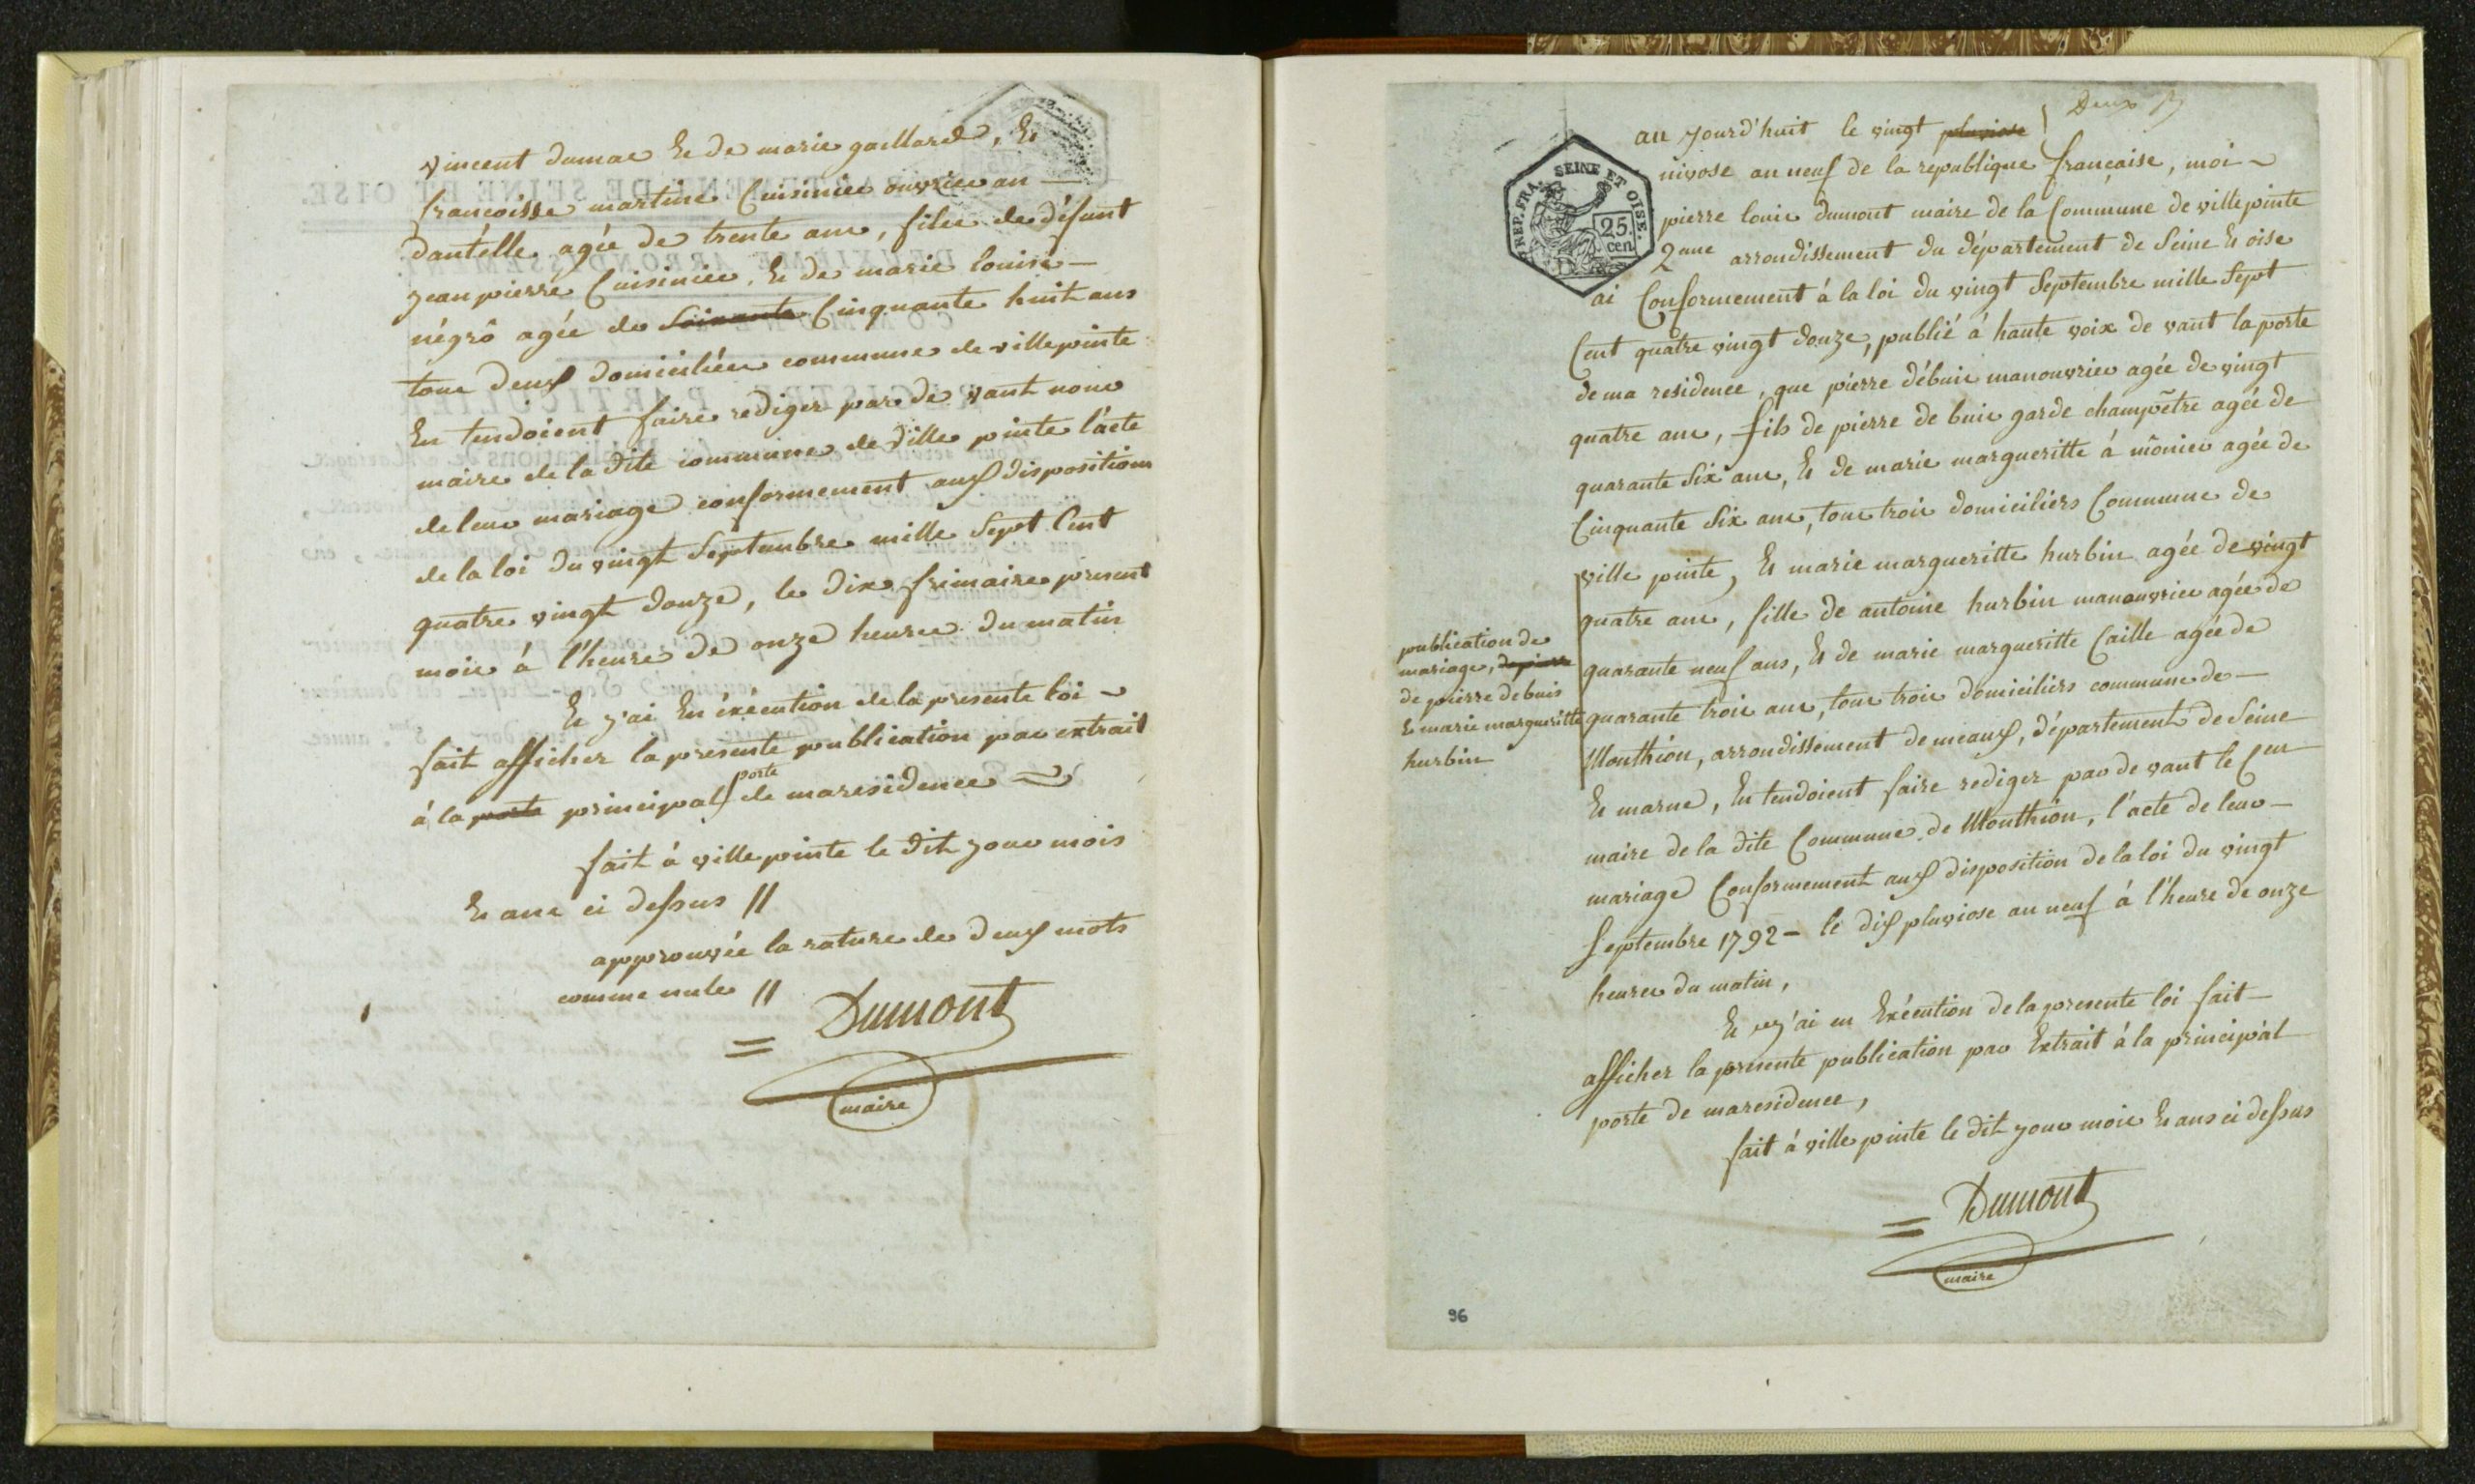 vincent dumae Et de marie gaillard, Et
francoisse martine Cuisiniee ouvriee an
dantélle agée de trente ans, filee de défunt
jean pierre Cuisiniee, Et de marie louise
négrô agée de soixante Cinquante huit ans
tous deux domiciliées commune de villepinte
En tendoient faire rediger par de vant nous
maire de la dite commune de ville pinte l'acte
de leur mariage conformement aux dispositions
de la loi du vingt Septembre mille Sept Cent
quatre vingt douze, le dix frimaire present
mois à l'heure de onze heures du matin
Et j'ai En éxécution de la presente loi
fait afficher la presente publication par extrait
à la porte principal porte de ma residence
fait à ville pinte le dit jour mois
Et ans ci dessus //
approuvée la rature de deux mots
comme nule //
= Dumont
maire
Deux
REP. FRA. SEINE ET OISE.
25. cen
au jourd'huit le vingt pluviose
nivose an neuf de la republique française, moi
pierre louis dumont maire de la Commune de villepinte
2eme arrondissement du département de Seine Et oise
ai Conformement à la loi du vingt Septembre mille Sept
Cent quatre vingt douze, publié à haute voix de vant la porte
de ma residence, que pierre débuis manouvrier agée de vingt
quatre ans, fils de pierre de buis garde champêtre agée de
quarante Six ans, Et de marie margueritte à mônier agée de
Cinquante Six ans, tous trois domiciliers Commune de
ville pinte, Et marie margueritte hurbin agée de vingt
quatre ans, fille de antoine hurbin manouvrier agée de
quarante neuf ans, Et de marie margueritte Caille agée de
quarante trois ans, tous trois domiciliers commune de
Monthion, arrondissement de meaux, département de Seine
Et marne, En tendoient faire rediger par de vant le Cen
maire de la dite Commune de Monthion, l'acte de leur
mariage Conformement aux disposition de la loi du vingt
Septembre 1792 - le dix pluviose an neuf à l'heure de onze
heures du matin,
Et j'ai en Exécution de la presente loi fait
afficher la presente publication par Extrait à la principal
porte de ma residence,
fait à ville pinte le dit jour mois Et ans ci dessus
= Dumont
maire
publication de
mariage, de pierre
de pierre debuis
Et marie margueritte
hurbin
96